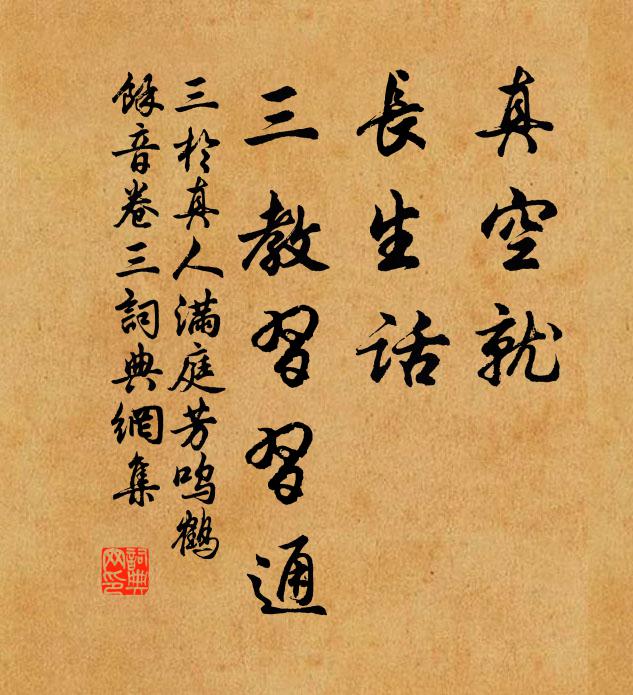 真空就
長生話
三教習習通
三於真人滿庭芳鳴鶴
餘音卷三詞典網集
詞典网印